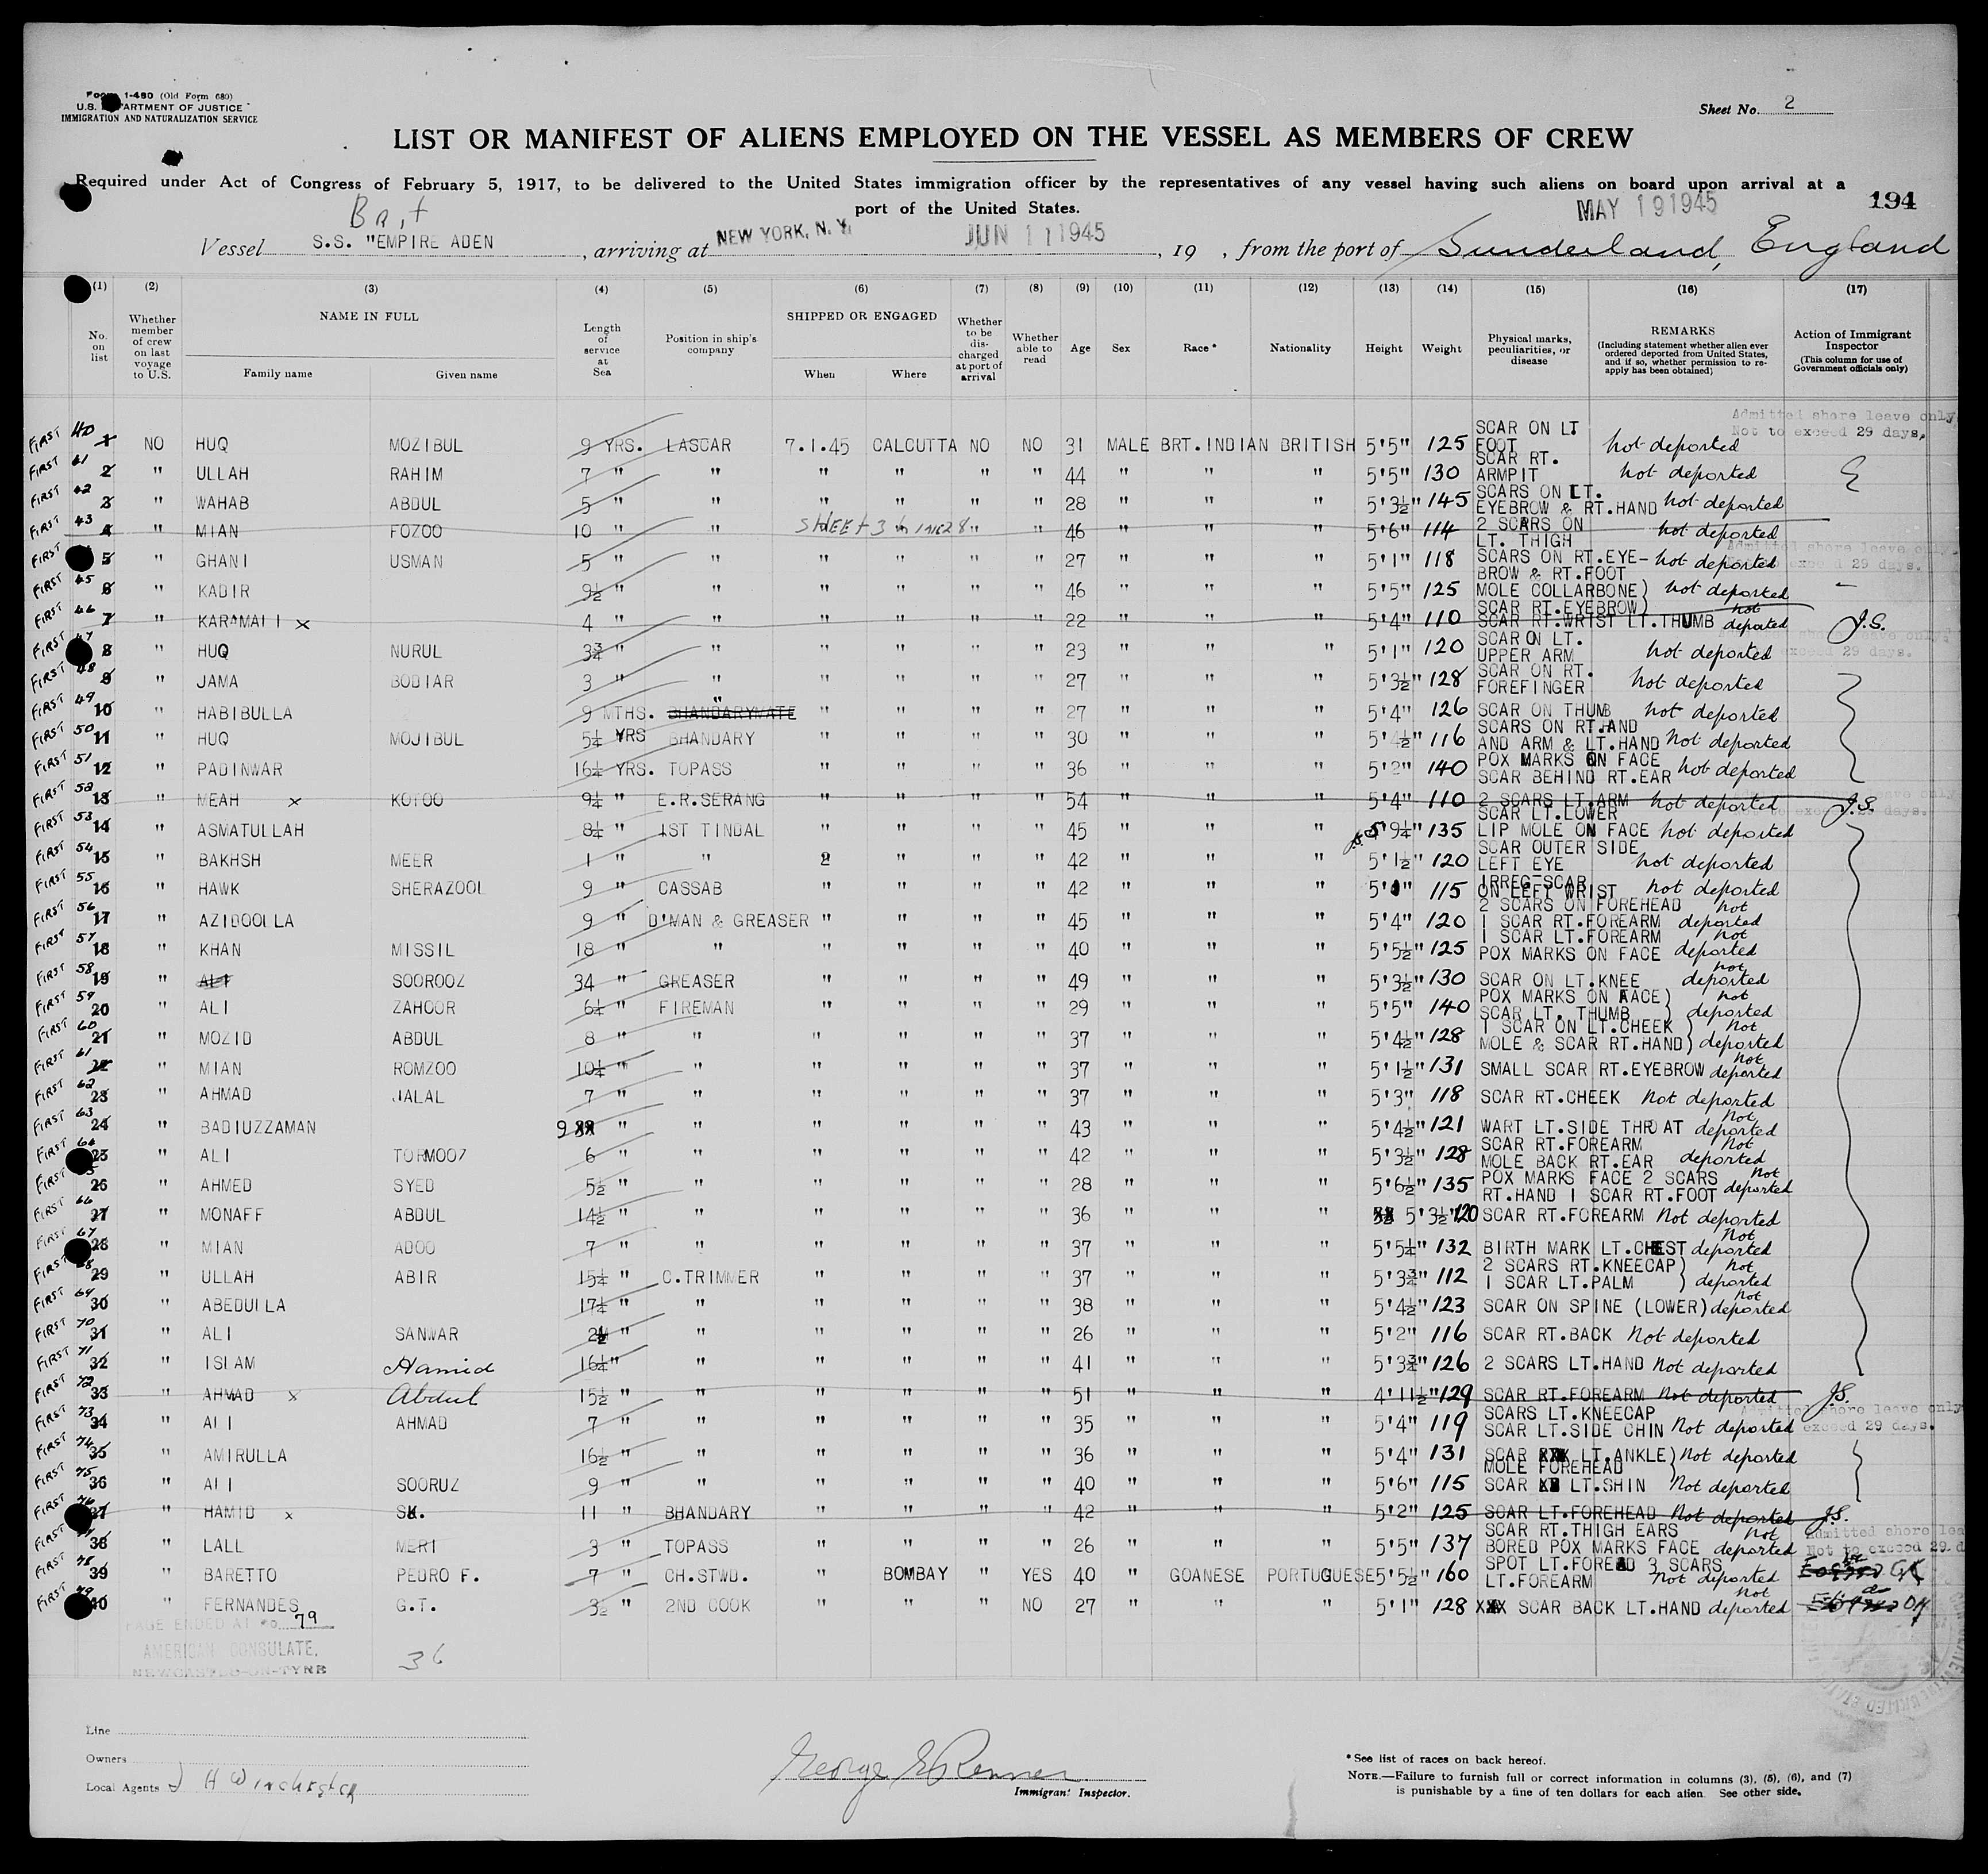 Form 1-480 (Old Form 680)
U.S. DEPARTMENT OF JUSTICE
IMMIGRATION AND NATURALIZATION SERVICE
Sheet No. 2
LIST OR MANIFEST OF ALIENS EMPLOYED ON THE VESSEL AS MEMBERS OF CREW
Required under Act of Congress of February 5, 1917, to be delivered to the United States immigration officer by the representatives of any vessel having such aliens on board upon arrival at a
port of the United States.
194
Brit
MAY 19 1945
Vessel S.S. "EMPIRE ADEN , arriving at NEW YORK, N.Y. JUN 11 1945 , 19 , from the port of Sunderland, England
(1) (2) (3) (4) (5) (6) (7) (8) (9) (10) (11) (12) (13) (14) (15) (16) (17)
No. on list
Whether member of crew on last voyage to U.S.
NAME IN FULL
Family name Given name
Length of service at Sea
Position in ship's company
SHIPPED OR ENGAGED
When Where
Whether to be discharged at port of arrival
Whether able to read
Age Sex Race* Nationality Height Weight
Physical marks, peculiarities, or disease
REMARKS
(Including statement whether alien ever ordered deported from United States, and if so, whether permission to reapply has been obtained)
Action of Immigrant Inspector
(This column for use of Government officials only)
Admitted shore leave only
Not to exceed 29 days.
FIRST 40 1 NO HUQ MOZIBUL 9 YRS. LASCAR 7.1.45 CALCUTTA NO NO 31 MALE BRT.INDIAN BRITISH 5'5" 125 SCAR ON LT FOOT not deported
FIRST 41 2 " ULLAH RAHIM 7 " " " " " " 44 " " " 5'5" 130 SCAR RT. ARMPIT not deported
FIRST 42 3 " WAHAB ABDUL 5 " " " " " " 28 " " " 5'3½" 145 SCARS ON LT. EYEBROW & RT.HAND not deported
FIRST 43 4 " MIAN FOZOO 10 " " SHEET 3 LINE 28 " " 46 " " " 5'6" 114 2 SCARS ON LT. THIGH not deported
FIRST 5 " GHANI USMAN 5 " " " " " " 27 " " " 5'1" 118 SCARS ON RT.EYE-BROW & RT.FOOT not deported
FIRST 45 6 " KADIR 9½ " " " " " " 46 " " " 5'5" 125 MOLE COLLARBONE) SCAR RT.EYEBROW) not deported
FIRST 46 7 " KARAMALI x 4 " " " " " " 22 " " " 5'4" 110 SCAR RT.WRIST LT.THUMB not deported J.S.
FIRST 47 8 " HUQ NURUL 3¾ " " " " " " 23 " " " 5'1" 120 SCAR ON LT. UPPER ARM not deported
FIRST 48 9 " JAMA BODIAR 3 " " " " " " 27 " " " 5'3½" 128 SCAR ON RT. FOREFINGER not deported
FIRST 49 10 " HABIBULLA 9 MTHS. BHANDARYMATE " " " " " 27 " " " 5'4" 126 SCAR ON THUMB not deported
FIRST 50 11 " HUQ MOJIBUL 5¼ YRS BHANDARY " " " " 30 " " " 5'4½" 116 SCARS ON RT.HAND AND ARM & LT.HAND Not deported
FIRST 51 12 " PADINWAR 16¼ YRS. TOPASS " " " " 36 " " " 5'2" 140 POX MARKS ON FACE SCAR BEHIND RT.EAR not deported
FIRST 52 13 " MEAH x KOTOO 9¼ " E.R.SERANG " " " " 54 " " " 5'4" 110 2 SCARS LT.ARM not deported J.S.
FIRST 53 14 " ASMATULLAH 8¼ " 1ST TINDAL " " " " 45 " " " 9¼" 135 SCAR LT.LOWER LIP MOLE ON FACE not deported
FIRST 54 15 " BAKHSH MEER 1 " " " " " " 42 " " " 5'1½" 120 SCAR OUTER SIDE LEFT EYE not deported
FIRST 55 16 " HAWK SHERAZOOL 9 " CASSAB " " " " 42 " " " 115 IRREG-SCAR ON LEFT WRIST not deported
FIRST 56 17 " AZIDOOLLA 9 " D'MAN & GREASER " " " " 45 " " " 5'4" 120 2 SCARS ON FOREHEAD 1 SCAR RT.FOREARM not deported
FIRST 57 18 " KHAN MISSIL 18 " " " " " " 40 " " " 5'5½" 125 1 SCAR LT.FOREARM POX MARKS ON FACE not deported
FIRST 58 19 " ALI SOOROOZ 34 " GREASER " " " " 49 " " " 5'3½" 130 SCAR ON LT.KNEE not deported
FIRST 59 20 " ALI ZAHOOR 6¼ " FIREMAN " " " " 29 " " " 5'5" 140 POX MARKS ON FACE) SCAR LT. THUMB ) not deported
FIRST 60 21 " MOZID ABDUL 8 " " " " " " 37 " " " 5'4½" 128 1 SCAR ON LT.CHEEK ) MOLE & SCAR RT.HAND) Not deported
FIRST 61 22 " MIAN ROMZOO 10¼ " " " " " " 37 " " " 5'1½" 131 SMALL SCAR RT.EYEBROW Not deported
FIRST 62 23 " AHMAD JALAL 7 " " " " " " 37 " " " 5'3" 118 SCAR RT.CHEEK Not deported
FIRST 63 24 " BADIUZZAMAN 9 " " " " " " 43 " " " 5'4½" 121 WART LT.SIDE THROAT Not deported
FIRST 64 25 " ALI TORMOOZ 6 " " " " " " 42 " " " 5'3½" 128 SCAR RT.FOREARM MOLE BACK RT.EAR Not deported
FIRST 26 " AHMED SYED 5½ " " " " " " 28 " " " 5'6½" 135 POX MARKS FACE 2 SCARS RT.HAND 1 SCAR RT.FOOT Not deported
FIRST 66 27 " MONAFF ABDUL 14½ " " " " " " 36 " " " 5'3½" 120 SCAR RT.FOREARM Not deported
FIRST 67 28 " MIAN ADOO 7 " " " " " " 37 " " " 5'5¼" 132 BIRTH MARK LT.CHEST Not deported
FIRST 68 29 " ULLAH ABIR 15¼ " C.TRIMMER " " " " 37 " " " 5'3¾" 112 2 SCARS RT.KNEECAP) 1 SCAR LT.PALM ) Not deported
FIRST 69 30 " ABEDULLA 17¼ " " " " " " 38 " " " 5'4½" 123 SCAR ON SPINE (LOWER) Not deported
FIRST 70 31 " ALI SANWAR " " " " " " 26 " " " 5'2" 116 SCAR RT.BACK Not deported
FIRST 71 32 " ISLAM Hamid 16¼" " " " " " 41 " " " 5'3¾" 126 2 SCARS LT.HAND Not deported
FIRST 72 33 " AHMAD x Abdul 15½ " " " " " " 51 " " " 4'11½" 129 SCAR RT.FOREARM Not deported J.S.
FIRST 73 34 " ALI AHMAD 7 " " " " " " 35 " " " 5'4" 119 SCARS LT.KNEECAP SCAR LT.SIDE CHIN Not deported
FIRST 74 35 " AMIRULLA 16½ " " " " " " 36 " " " 5'4" 131 SCAR LT.ANKLE) MOLE FOREHEAD ) Not deported
FIRST 75 36 " ALI SOORUZ 9 " " " " " " 40 " " " 5'6" 115 SCAR LT.SHIN Not deported
FIRST 76 37 " HAMID x SK. 11 " BHANDARY " " " " 42 " " " 5'2" 125 SCAR LT.FOREHEAD Not deported J.S.
FIRST 77 38 " LALL MERI 3 " TOPASS " " " " 26 " " " 5'5" 137 SCAR RT.THIGH EARS BORED POX MARKS FACE Not deported
Admitted shore lea
Not to exceed 29 d
FIRST 78 39 " BARETTO PEDRO F. 7 " CH.STWD. " BOMBAY " YES 40 " GOANESE PORTUGUESE 5'5½" 160 SPOT LT.FOREAD 3 SCARS LT.FOREARM Not deported
FIRST 79 40 " FERNANDES G.T. 3½ " 2ND COOK " " " NO 27 " " " 5'1" 128 SCAR BACK LT.HAND Not deported
PAGE ENDED AT NO. 79
AMERICAN CONSULATE,
NEWCASTLE-ON-TYNE
36
Line
Owners
Local Agents J H Winchester
George E Renner
Immigrant Inspector.
*See list of races on back hereof.
NOTE.—Failure to furnish full or correct information in columns (3), (5), (6), and (7)
is punishable by a fine of ten dollars for each alien. See other side.